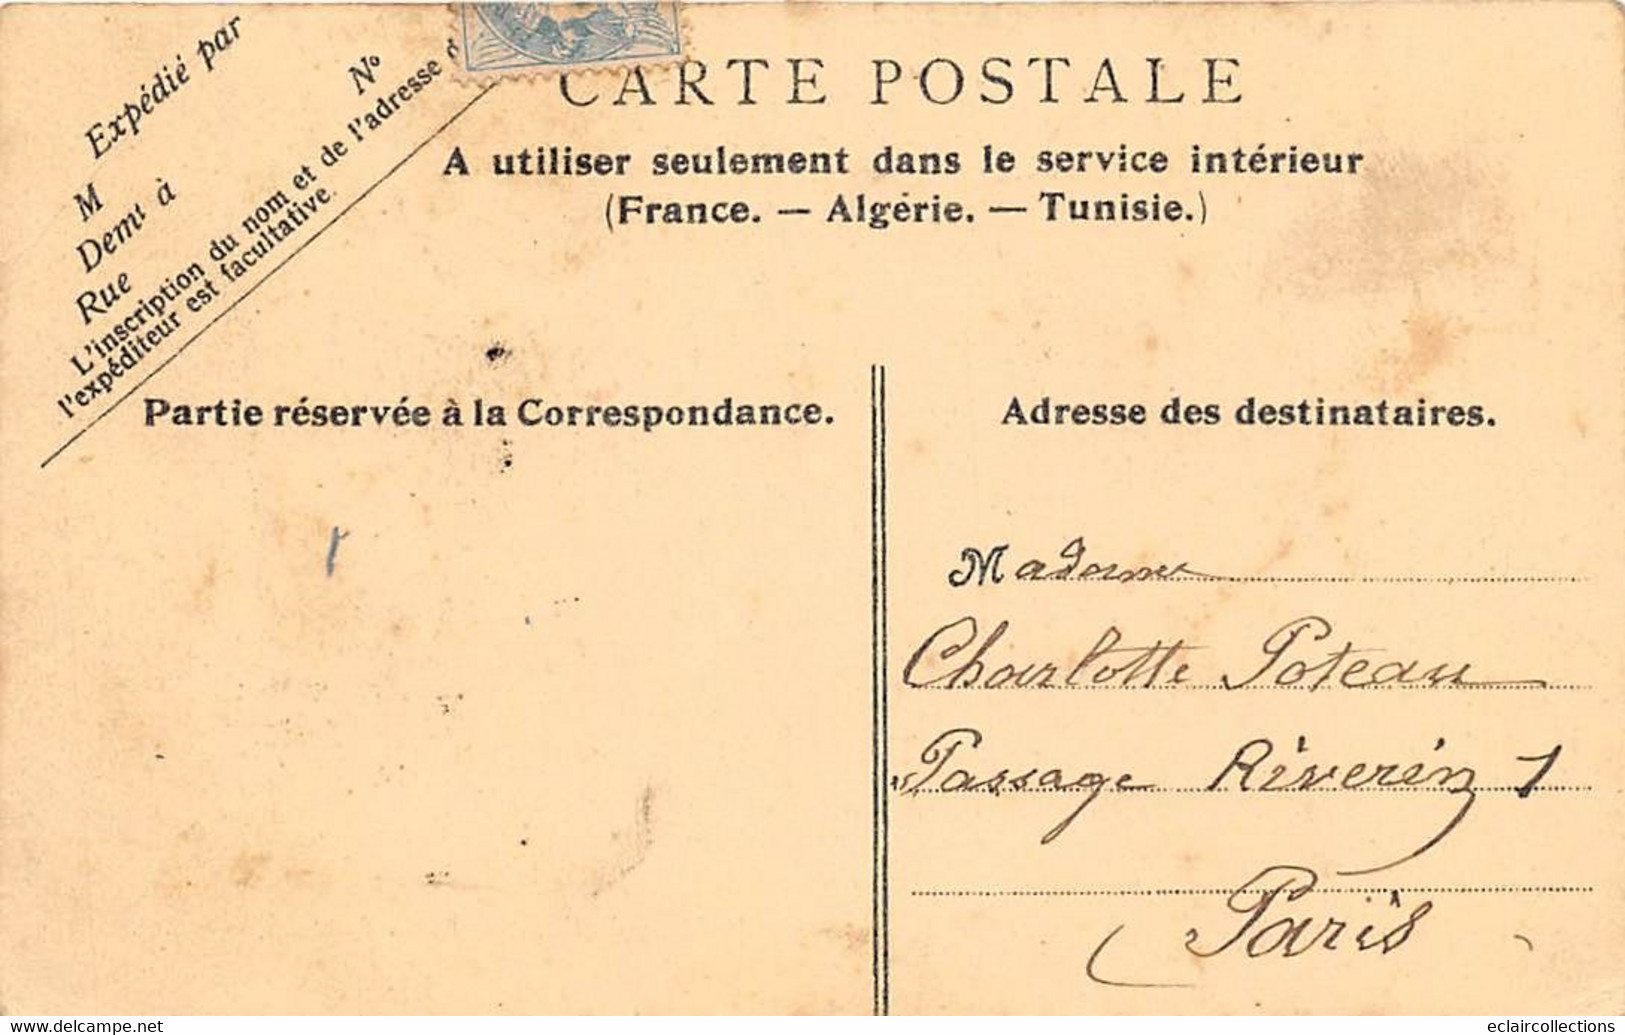 Expédié par
M
Demt à
Rue
N°
L'inscription du nom et de l'adresse d
l'expéditeur est facultative.
CARTE POSTALE
A utiliser seulement dans le service intérieur
(France. — Algérie. — Tunisie.)
Partie réservée à la Correspondance.
Adresse des destinataires.
Madame
Charlotte Poteau
Passage Riverin 1
Paris
www.delcampe.net
eclaircollections